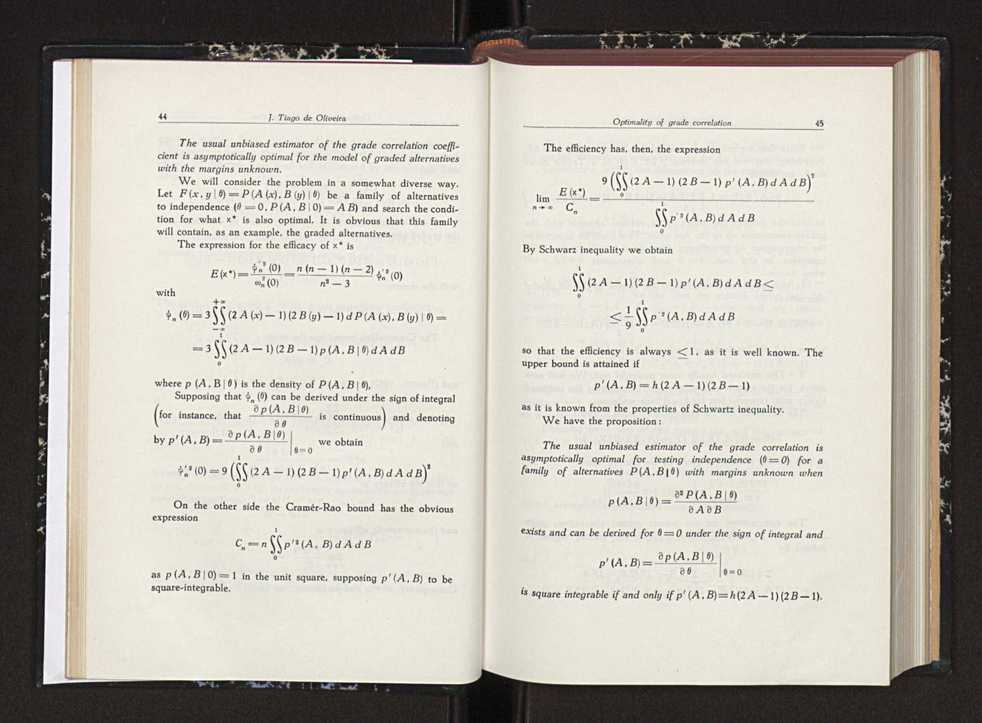 44 J. Tiago de Oliveira
The usual unbiased estimator of the grade correlation coeffi-
cient is asymptotically optimal for the model of graded alternatives
with the margins unknown.
We will consider the problem in a somewhat diverse way.
Let F (x, y | θ) = P (A (x), B (y) | θ) be a family of alternatives
to independence (θ = 0, P (A, B | 0) = A B) and search the condi-
tion for what x* is also optimal. It is obvious that this family
will contain, as an example, the graded alternatives.
The expression for the efficacy of x* is
E (x*) = ψ̇ₙ′² (0) / ωₙ² (0) = n (n — 1) (n — 2) / n² — 3 ψ̇ₙ′² (0)
with
ψ̇ₙ (θ) = 3 ∬_{—∞}^{+∞} (2 A (x) — 1) (2 B (y) — 1) d P (A (x), B (y) | θ) =
= 3 ∬₀¹ (2 A — 1) (2 B — 1) p (A, B | θ) d A d B
where p (A, B | θ) is the density of P (A, B | θ),
Supposing that ψ̇ₙ (θ) can be derived under the sign of integral
(for instance, that ∂ p (A, B | θ) / ∂ θ is continuous) and denoting
by p′ (A, B) = ∂ p (A, B | θ) / ∂ θ |θ = 0 we obtain
ψ̇ₙ′² (0) = 9 (∬₀¹ (2 A — 1) (2 B — 1) p′ (A, B) d A d B)²
On the other side the Cramér-Rao bound has the obvious
expression
Cₙ = n ∬₀¹ p′² (A, B) d A d B
as p (A, B | 0) = 1 in the unit square, supposing p′ (A, B) to be
square-integrable.
Optimality of grade correlation 45
The efficiency has, then, the expression
lim n→∞ E (x*) / Cₙ = 9 (∬₀¹ (2 A — 1) (2 B — 1) p′ (A, B) d A d B)² / ∬₀¹ p′² (A, B) d A d B
By Schwarz inequality we obtain
∬₀¹ (2 A — 1) (2 B — 1) p′ (A, B) d A d B ≤
≤ 1/9 ∬₀¹ p′² (A, B) d A d B
so that the efficiency is always ≤ 1, as it is well known. The
upper bound is attained if
p′ (A, B) = h (2 A — 1) (2 B — 1)
as it is known from the properties of Schwartz inequality.
We have the proposition:
The usual unbiased estimator of the grade correlation is
asymptotically optimal for testing independence (θ = 0) for a
family of alternatives P (A, B | θ) with margins unknown when
p (A, B | θ) = ∂² P (A, B | θ) / ∂ A ∂ B
exists and can be derived for θ = 0 under the sign of integral and
p′ (A, B) = ∂ p (A, B | θ) / ∂ θ |θ = 0
is square integrable if and only if p′ (A, B) = h (2 A — 1) (2 B — 1).